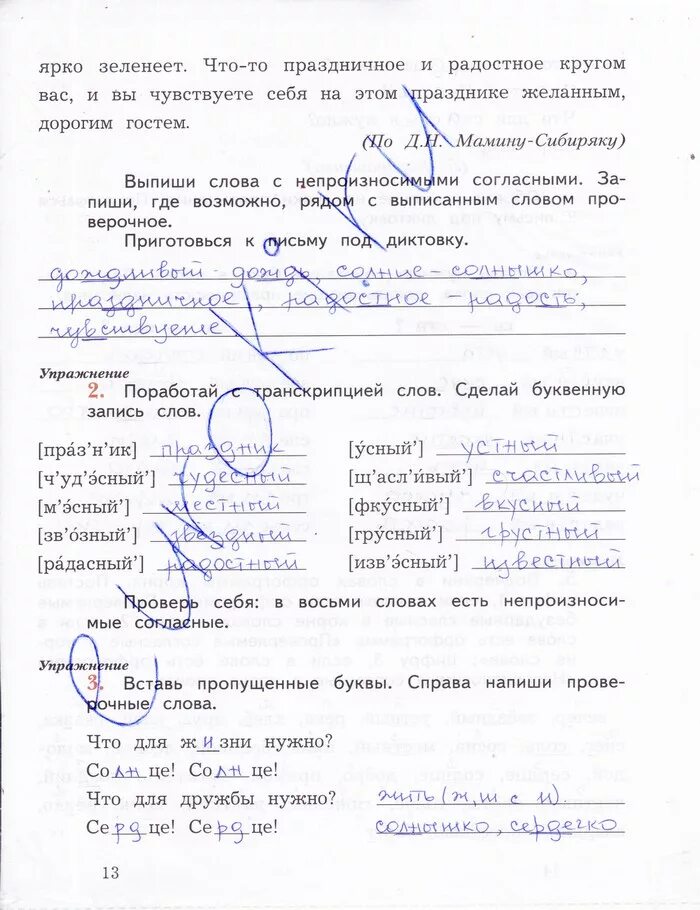 ярко зеленеет. Что-то праздничное и радостное кругом
вас, и вы чувствуете себя на этом празднике желанным,
дорогим гостем.
(По Д.Н. Мамину-Сибиряку)
Выпиши слова с непроизносимыми согласными. За-
пиши, где возможно, рядом с выписанным словом про-
верочное.
Приготовься к письму под диктовку.
дождливый - дождь, солнце - солнышко,
праздничное, радостное - радость,
чувствуете
Упражнение
2. Поработай с транскрипцией слов. Сделай буквенную
запись слов.
[пра́з'н'ик] праздник [у́сный'] устный
[ч'уд'э́сный'] чудесный [щ'асл'и́вый'] счастливый
[м'э́сный'] местный [фку́сный'] вкусный
[зв'о́зный'] звездный [гру́сный'] грустный
[ра́дасный'] радостный [изв'э́сный'] известный
Проверь себя: в восьми словах есть непроизноси-
мые согласные.
Упражнение
3. Вставь пропущенные буквы. Справа напиши прове-
рочные слова.
Что для жизни нужно?
Солнце! Солнце!
Что для дружбы нужно? жить (ж, ш с и)
Сердце! Сердце! солнышко, сердечко
13